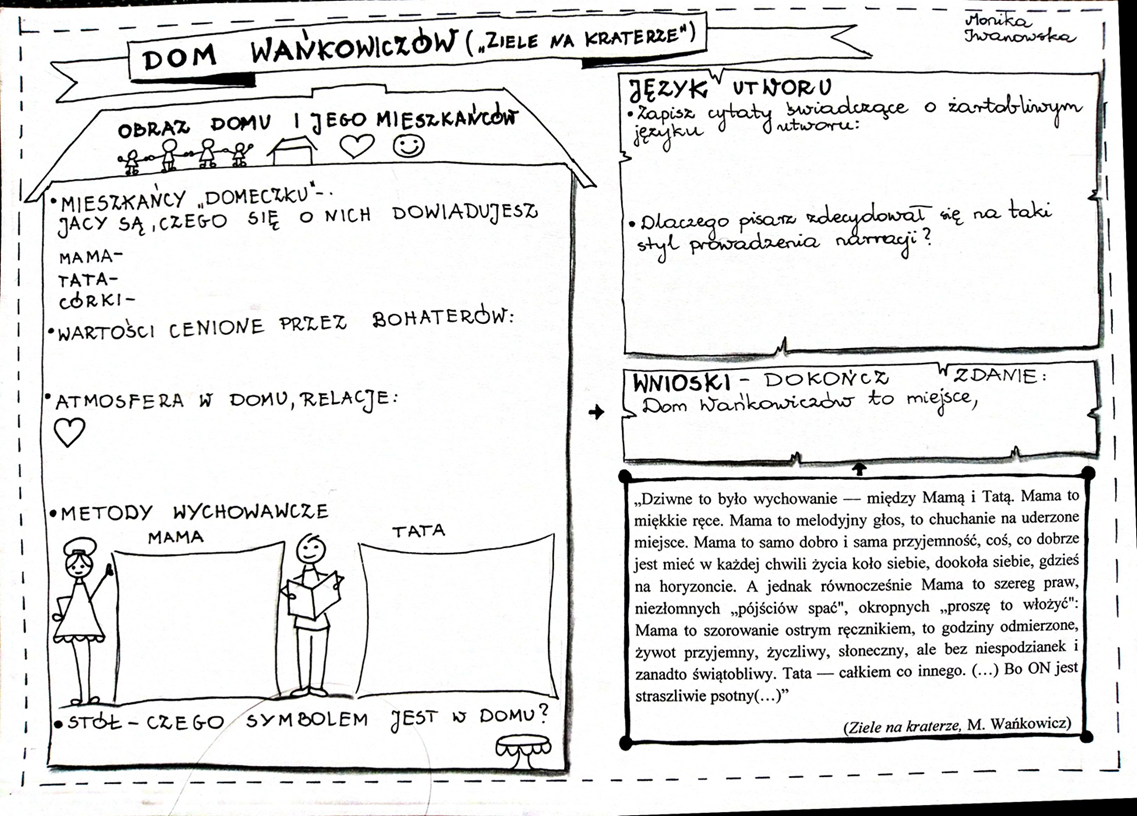 DOM WAŃKOWICZÓW („ZIELE NA KRATERZE")
Monika
Iwanowska
OBRAZ DOMU I JEGO MIESZKAŃCÓW
•MIESZKAŃCY „DOMECZKU"-.
JACY SĄ, CZEGO SIĘ O NICH DOWIADUJESZ
MAMA-
TATA-
CÓRKI-
•WARTOŚCI CENIONE PRZEZ BOHATERÓW:
•ATMOSFERA W DOMU, RELACJE:
•METODY WYCHOWAWCZE
MAMA
TATA
•STÓŁ-CZEGO SYMBOLEM JEST W DOMU?
JĘZYK UTWORU
•Zapisz cytaty świadczące o żartobliwym
języku utworu:
•Dlaczego pisarz zdecydował się na taki
styl prowadzenia narracji?
WNIOSKI - DOKOŃCZ ZDANIE:
Dom Wańkowiczów to miejsce,
„Dziwne to było wychowanie — między Mamą i Tatą. Mama to
miękkie ręce. Mama to melodyjny głos, to chuchanie na uderzone
miejsce. Mama to samo dobro i sama przyjemność, coś, co dobrze
jest mieć w każdej chwili życia koło siebie, dookoła siebie, gdzieś
na horyzoncie. A jednak równocześnie Mama to szereg praw,
niezłomnych „pójściów spać", okropnych „proszę to włożyć":
Mama to szorowanie ostrym ręcznikiem, to godziny odmierzone,
żywot przyjemny, życzliwy, słoneczny, ale bez niespodzianek i
zanadto świątobliwy. Tata — całkiem co innego. (…) Bo ON jest
straszliwie psotny(…)”
(Ziele na kraterze, M. Wańkowicz)